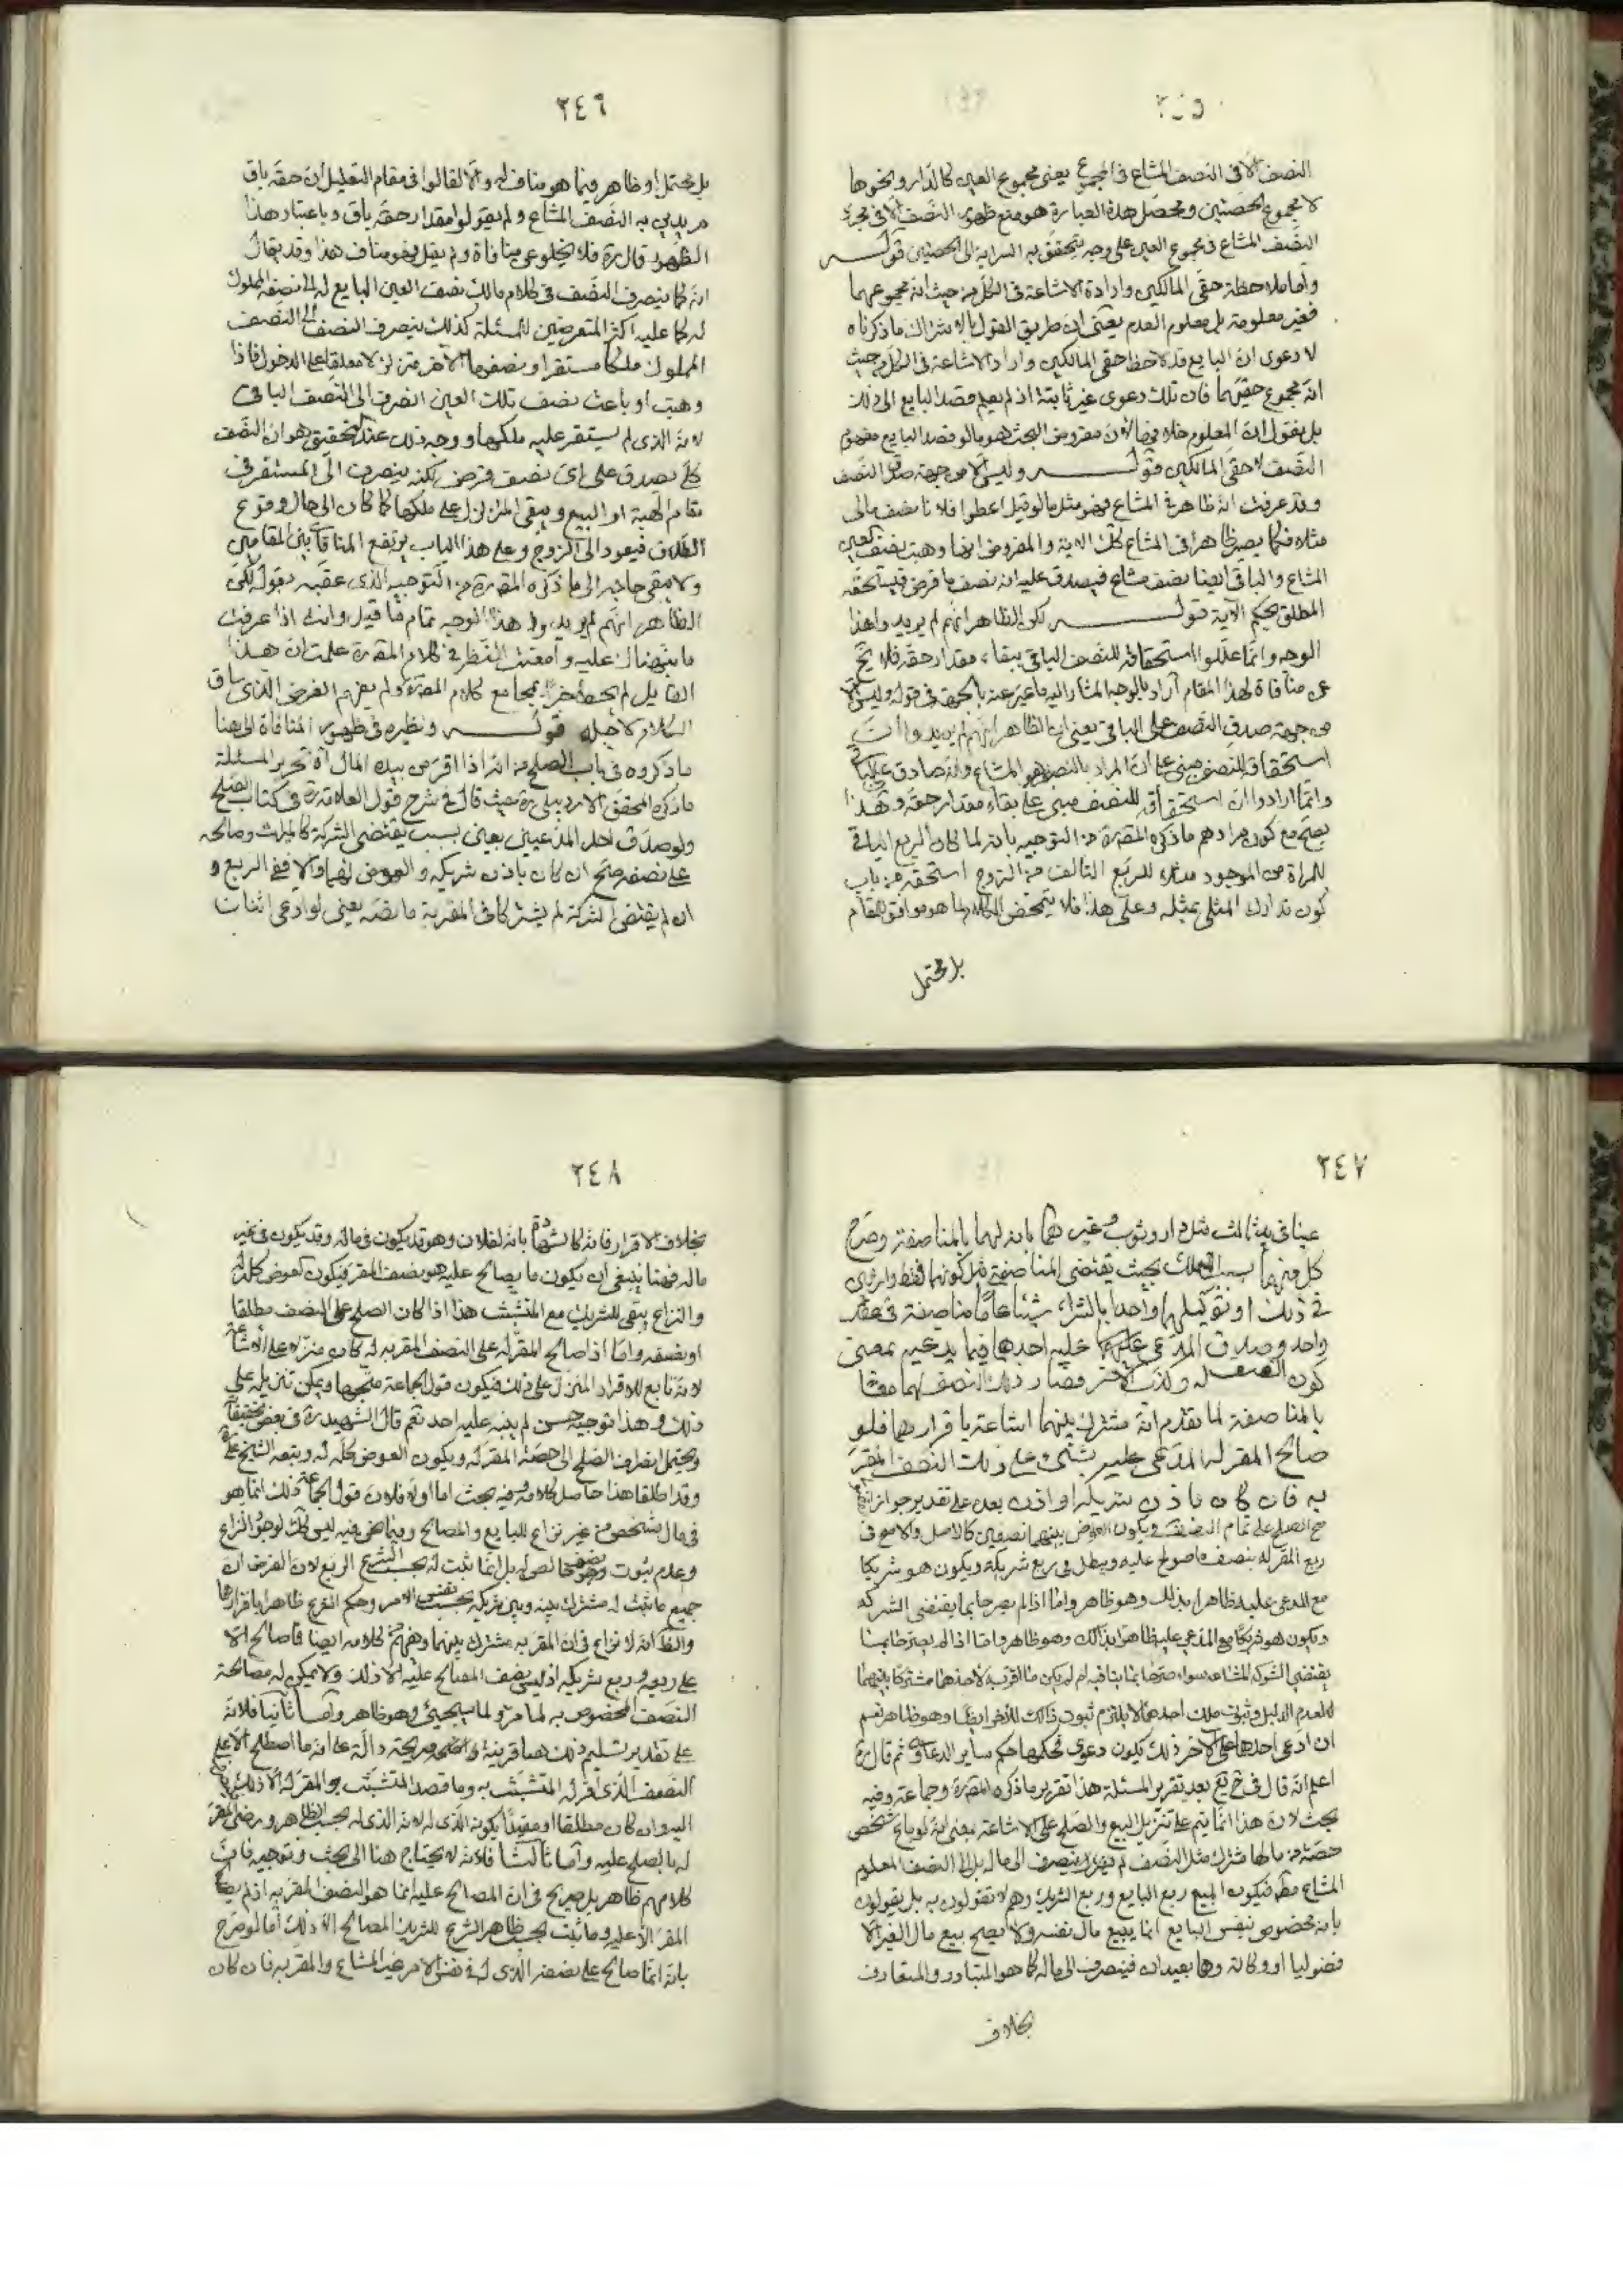 ٢٤٥
النصف الا فى النصف المشاع فى المجموع يعنى مجموع العين كالدار ونحوها
لا مجموع الحصتين ومحصل هذه العبارة هو منع ظهور النصف الا فى مجرد
النصف المشاع فى مجموع العين على وجه يتحقق به السراية الى الحصتين قوله
واما ملاحظة حقى المالكين وارادة الاشاعة فى الكل من حيث انه مجموعهما
فغير معلومة بل معلوم العدم يعنى ان طريق القول بالاشتراك ما ذكرناه
لا دعوى ان البايع قد لاحظ حقى المالكين واراد الاشاعة فى الكل من حيث
انه مجموع حقيهما فان تلك دعوى غير ثابتة اذ لم يعلم قصد البايع الى ذلك
بل نقول ان المعلوم خلافه لان مفروض البحث هو ما لو قصد البايع مفهوم
النصف لا حقى المالكين قوله وليس الا من جهة صدق النصف
وقد عرفت انه ظاهر فى المشاع فهو مثل ما لو قيل اعطوا فلانا نصف مالى
مثلا فكما يصير ظاهرا فى المشاع كك الاية والمفروض ايضا وهبت نصف العين
المشاع والباقى ايضا نصف مشاع فيصدق عليه انه نصف ما فرض فيستحقه
المطلق بحكم الآية قوله لكن الظاهر انهم لم يريدوا هذا
الوجه وانما عللوا استحقاقه للنصف الباقى ببقاء مقدار حقه فلا يخ
عن منافاة لهذا المقام اراد بالوجه المشار اليه ما عبر عنه بالجهة فى قوله وليس الا
من جهة صدق النصف على الباقى يعنى ان الظاهر انهم لم يريدوا ان
استحقاقه للنصف مبنى على ان المراد بالنصف هو المشاع وانه صادق على الباقى
وانما ارادوا ان استحقاقه للنصف مبنى على بقاء مقدار حقه وهذا
يصح مع كون مرادهم ما ذكره المصنف ره من التوجيه بانه لما كان الربع الباقى
للمراة من الموجود مثلا للربع التالف من الزوج استحقه من باب
كون تدارك المثلى بمثله وعلى هذا فلا يتمحض الكلام لما هو موافق للمقام
بل محتمل
٢٤٦
بل محتمل او ظاهر فيما هو مناف له والا لقالوا فى مقام التعليل ان حقه باق
مريدين به النصف المشاع ولم يقولوا مقدار حقه باق وباعتبار هذا
الظهور قال ره فلا يخلو عن منافاة ولم يقل فهو مناف هذا وقد يقال
انه كما ينصرف النصف فى كلام مالك نصف العين البايع له الى نصفه المملوك
له كما عليه اكثر المتعرضين للمسئلة كذلك ينصرف النصف الى النصف
المملوك ملكا مستقرا ونصفها الاخر متزلزلا معلقا على الدخول فاذا
وهبت او باعت نصف تلك العين انصرف الى النصف الباقى
لانه الذى لم يستقر عليه ملكها ووجه ذلك عند التحقيق هو ان النصف
كلى يصدق على اى نصف فرض لكنه ينصرف الى المستقر فى
مقام الهبة او البيع ويبقى المتزلزل على ملكها كما كان الى حال وقوع
الطلاق فيعود الى الزوج وعلى هذا الباب يرتفع المنافاة بين المقامين
ولا يبقى حاجة الى ما ذكره المصنف ره من التوجيه الذى عقبه بقوله لكن
الظاهر انهم لم يريدوا هذا الوجه تمام ما قيل وانت اذا عرفت
ما نبهناك عليه وامعنت النظر فى كلام المصنف ره علمت ان هذا
القايل لم يحط خبرا بمجامع كلام المصنف ره ولم يفهم الغرض الذى ساق
الكلام لاجله قوله ونظيره فى ظهور المنافاة لما هنا
ما ذكروه فى باب الصلح من انه اذا اقر من بيده المال آه تحرير المسئلة
ما ذكره المحقق الاردبيلى ره حيث قال فى شرح قول العلامة ره فى كتاب الصلح
ولو صدق احد المدعيين بعين بسبب يقتضى الشركة كالميراث وصالحه
على نصفه صح ان كان باذن شريكه والعوض لهما والا ففى الربع و
ان لم يقتض الشركة لم يشتركا فى المقربة ما نصه يعنى لو ادعى اثنان
٢٤٧
عينا فى يد ثالث مثل دار وثوب وغيرهما بانه لهما بالمناصفة وصرح
كل منهما بسبب التملك بحيث يقتضى المناصفة مثل كونهما فقط وارثين
فى ذلك او بتوكيلهما واحدا بالشراء شيئا عاما مناصفة فى عقد
واحد وصدق المدعى عليهما عليه احدهما فيما يدعيه بمعنى
كون النصف له وكذب الاخر فصار ذلك النصف لهما معا
بالمناصفة لما تقدم انه مشترك بينهما اشاعة باقرارهما فلو
صالح المقر له المدعى عليه بشئ على ذلك النصف المقر
به فان كان باذن شريكه او اذن بعده على تقدير جواز
صح الصلح على تمام النصف ويكون العوض بينهما نصفين كالاصل والا صح فى
ربع المقر له بنصف ما صولح عليه ويبطل فى ربع شريكه ويكون هو شريكا
مع المدعى عليه ظاهرا بذلك وهو ظاهر واما اذا لم يصرحا بما يقتضى الشركة
ويكون هو شريكا مع المدعى عليه ظاهرا بذالك وهو ظاهر واما اذا لم يصرحا بما
يقتضى الشركة المشاعة سواء صرحا بما ينافيه ام لم يكن ما اقر به لاحدهما مشتركا بينهما
لعدم الدليل وثبوت ملك احدهما لا يلتزم ثبوت ذالك للاخر ايضا وهو ظاهر نعم
ان ادعى احدهما على الاخر ذلك يكون دعوى فحكمها حكم ساير الدعاوى ثم قال ره
اعلم انه قال فى شرح يع بعد تقرير المسئلة هذا تقرير ما ذكره المصنف ره وجماعة وفيه
بحث لان هذا انما يتم على تنزيل البيع والصلح على الاشاعة بمعنى انه لو باع شخص
حصة من مالها مشترك مثل النصف لم ينصرف الى ماله بل الى النصف المعلوم
المشاع مطلقا فيكون المبيع ربع البايع وربع الشريك وهم لا تقولون به بل يقولون
بانه مخصوص بنفس البايع انما يبيع مال نفسه ولا يصح بيع مال الغير الا
فضوليا او وكالة وهما بعيدان فينصرف الى ماله كما هو المتبادر والمتعارف
بخلاف
٢٤٨
بخلاف الاقرار فانه كالشهادة بانه لفلان وهو قد يكون فى ماله وقد يكون فى غير
ماله فهنا ينبغى ان يكون ما يصالح عليه هو نصف المقر فيكون العوض كله له
والنزاع يبقى للشريك مع المتشبث هذا اذا كان الصلح على النصف مطلقا
او نصفه واما اذا صالح المقر له على النصف المقر به له كان منزلا على الاشاعة
لانه تابع للاقرار المنزل على ذلك فيكون قول الجماعة متجها ويمكن تنزيله على
ذلك وهذا توجيه حسن لم ينبه عليه احد نعم قال الشهيد ره فى بعض تحقيقاته
ويحتمل انصراف الصلح الى حصة المقر له ويكون العوض كله له وتبعه الشيخ على
وقد اطلقا هذا حاصل كلامه وفيه بحث اما اولا فلان قول الجماعة ذلك انما هو
فى مال شخص من غير نزاع للبايع والمصالح وما نحن فيه ليس كك لوجود النزاع
وعدم ثبوت نصف خالص له بل انما ثبت له بحسب الشرع الربع لان الفرض ان
جميع ما ثبت له مشترك بينه وبين شريكه بحسب نفس الامر وحكم الشرع ظاهرا باقرارهما
والظ انه لا نزاع فى ان المقر به مشترك بينهما وفهم من كلامه ايضا فما صالح الا
على ربعه وربع شريكه اذ ليس نصف المصالح عليه الا ذلك ولا يمكن له مصالحة
النصف المخصوص به لما مر ولما سيجئ وهو ظاهر واما ثانيا فلانه
على تقدير تسليم ذلك هنا قرينة واضحة صريحة دالة على انه ما اصطلح الا على
النصف الذى اقر له المتشبث به وما قصد المتشبث والمقر له الا ذلك
اليه وان كان مطلقا او مقيدا بكونه الذى له لانه الذى له بحسب الظاهر ورضى المقر
له بالصلح عليه واما ثالثا فلانه لا يحتاج هنا الى بحث وتوجيه فان
كلامهم ظاهر بل صريح فى ان المصالح عليه انما هو النصف المقر به اذ لم يصالح
المقر الا عليه وما ثبت بحسب ظاهر الشرع للشريك المصالح الا ذلك اما لو صرح
بانه انما صالح على نصفه الذى له فى نفس الامر غير المشاع والمقر به فان كان